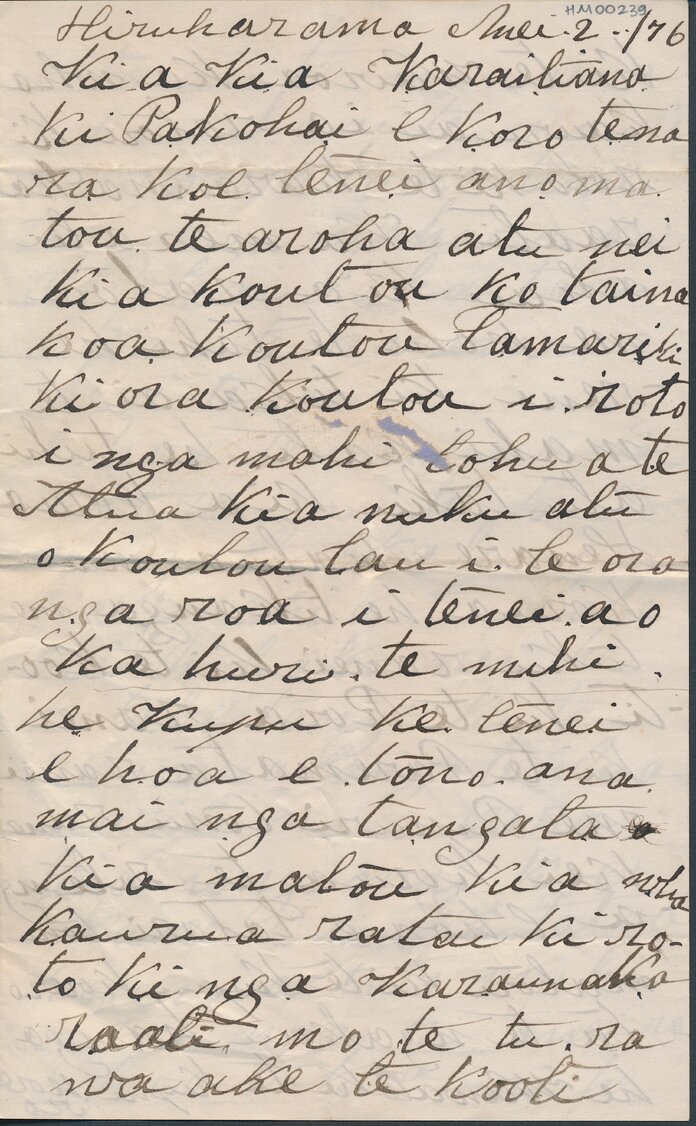 HM00239
Hiruharama Mei. 2. /76
Ki a Kia Karaitiana
Ki Pakohai E Koro tena
ra koe. tenei ano ma
tou te aroha atu nei
Ki a koutou ko taina
koa koutou Tamariki
Ki ora koutou i. roto
i nga mahi tohu a te
Atua Kia nuku atu
o Koutou tau i. te ora
nga roa i tenei. ao
Ka huri. te mihi.
he Kupu ke tenei
e hoa e. tono. ana.
mai nga tangata
Kia matou kia
Kaurua ratau ki ro-
to ki nga Karauna
raati, mo te tu. ra
wa ake te Kooti